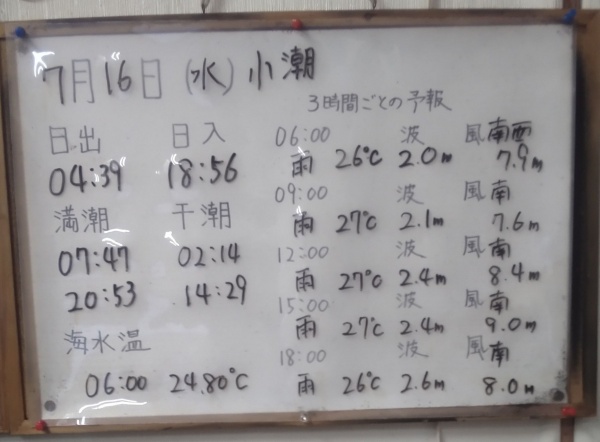 7月16日 (水) 小潮
3時間ごとの予報
日出 日入
04:39 18:56
満潮 干潮
07:47 02:14
20:53 14:29
海水温
06:00 24.80℃
06:00 波 風 南西
雨 26℃ 2.0m 7.9m
09:00 波 風 南
雨 27℃ 2.1m 7.6m
12:00 波 風 南
雨 27℃ 2.4m 8.4m
15:00 波 風 南
雨 27℃ 2.4m 9.0m
18:00 波 風 南
雨 26℃ 2.6m 8.0m